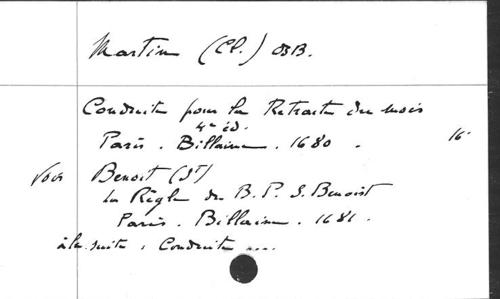 Martin (Cl.) OSB.
Conduite pour la Retraite du mois
4e éd.
Paris. Billaine. 1680. 16°
Voir Benoit (St)
La Règle du B. P. S. Benoist
Paris. Billaine. 1681.
à la suite : Conduite ....